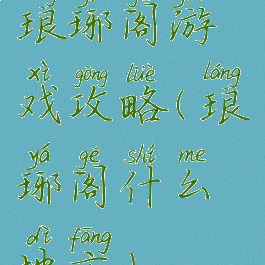 琅琊阁游
xì gōng lüè láng
戏攻略(琅
yá gé shí me
琊阁什么
dì fāng